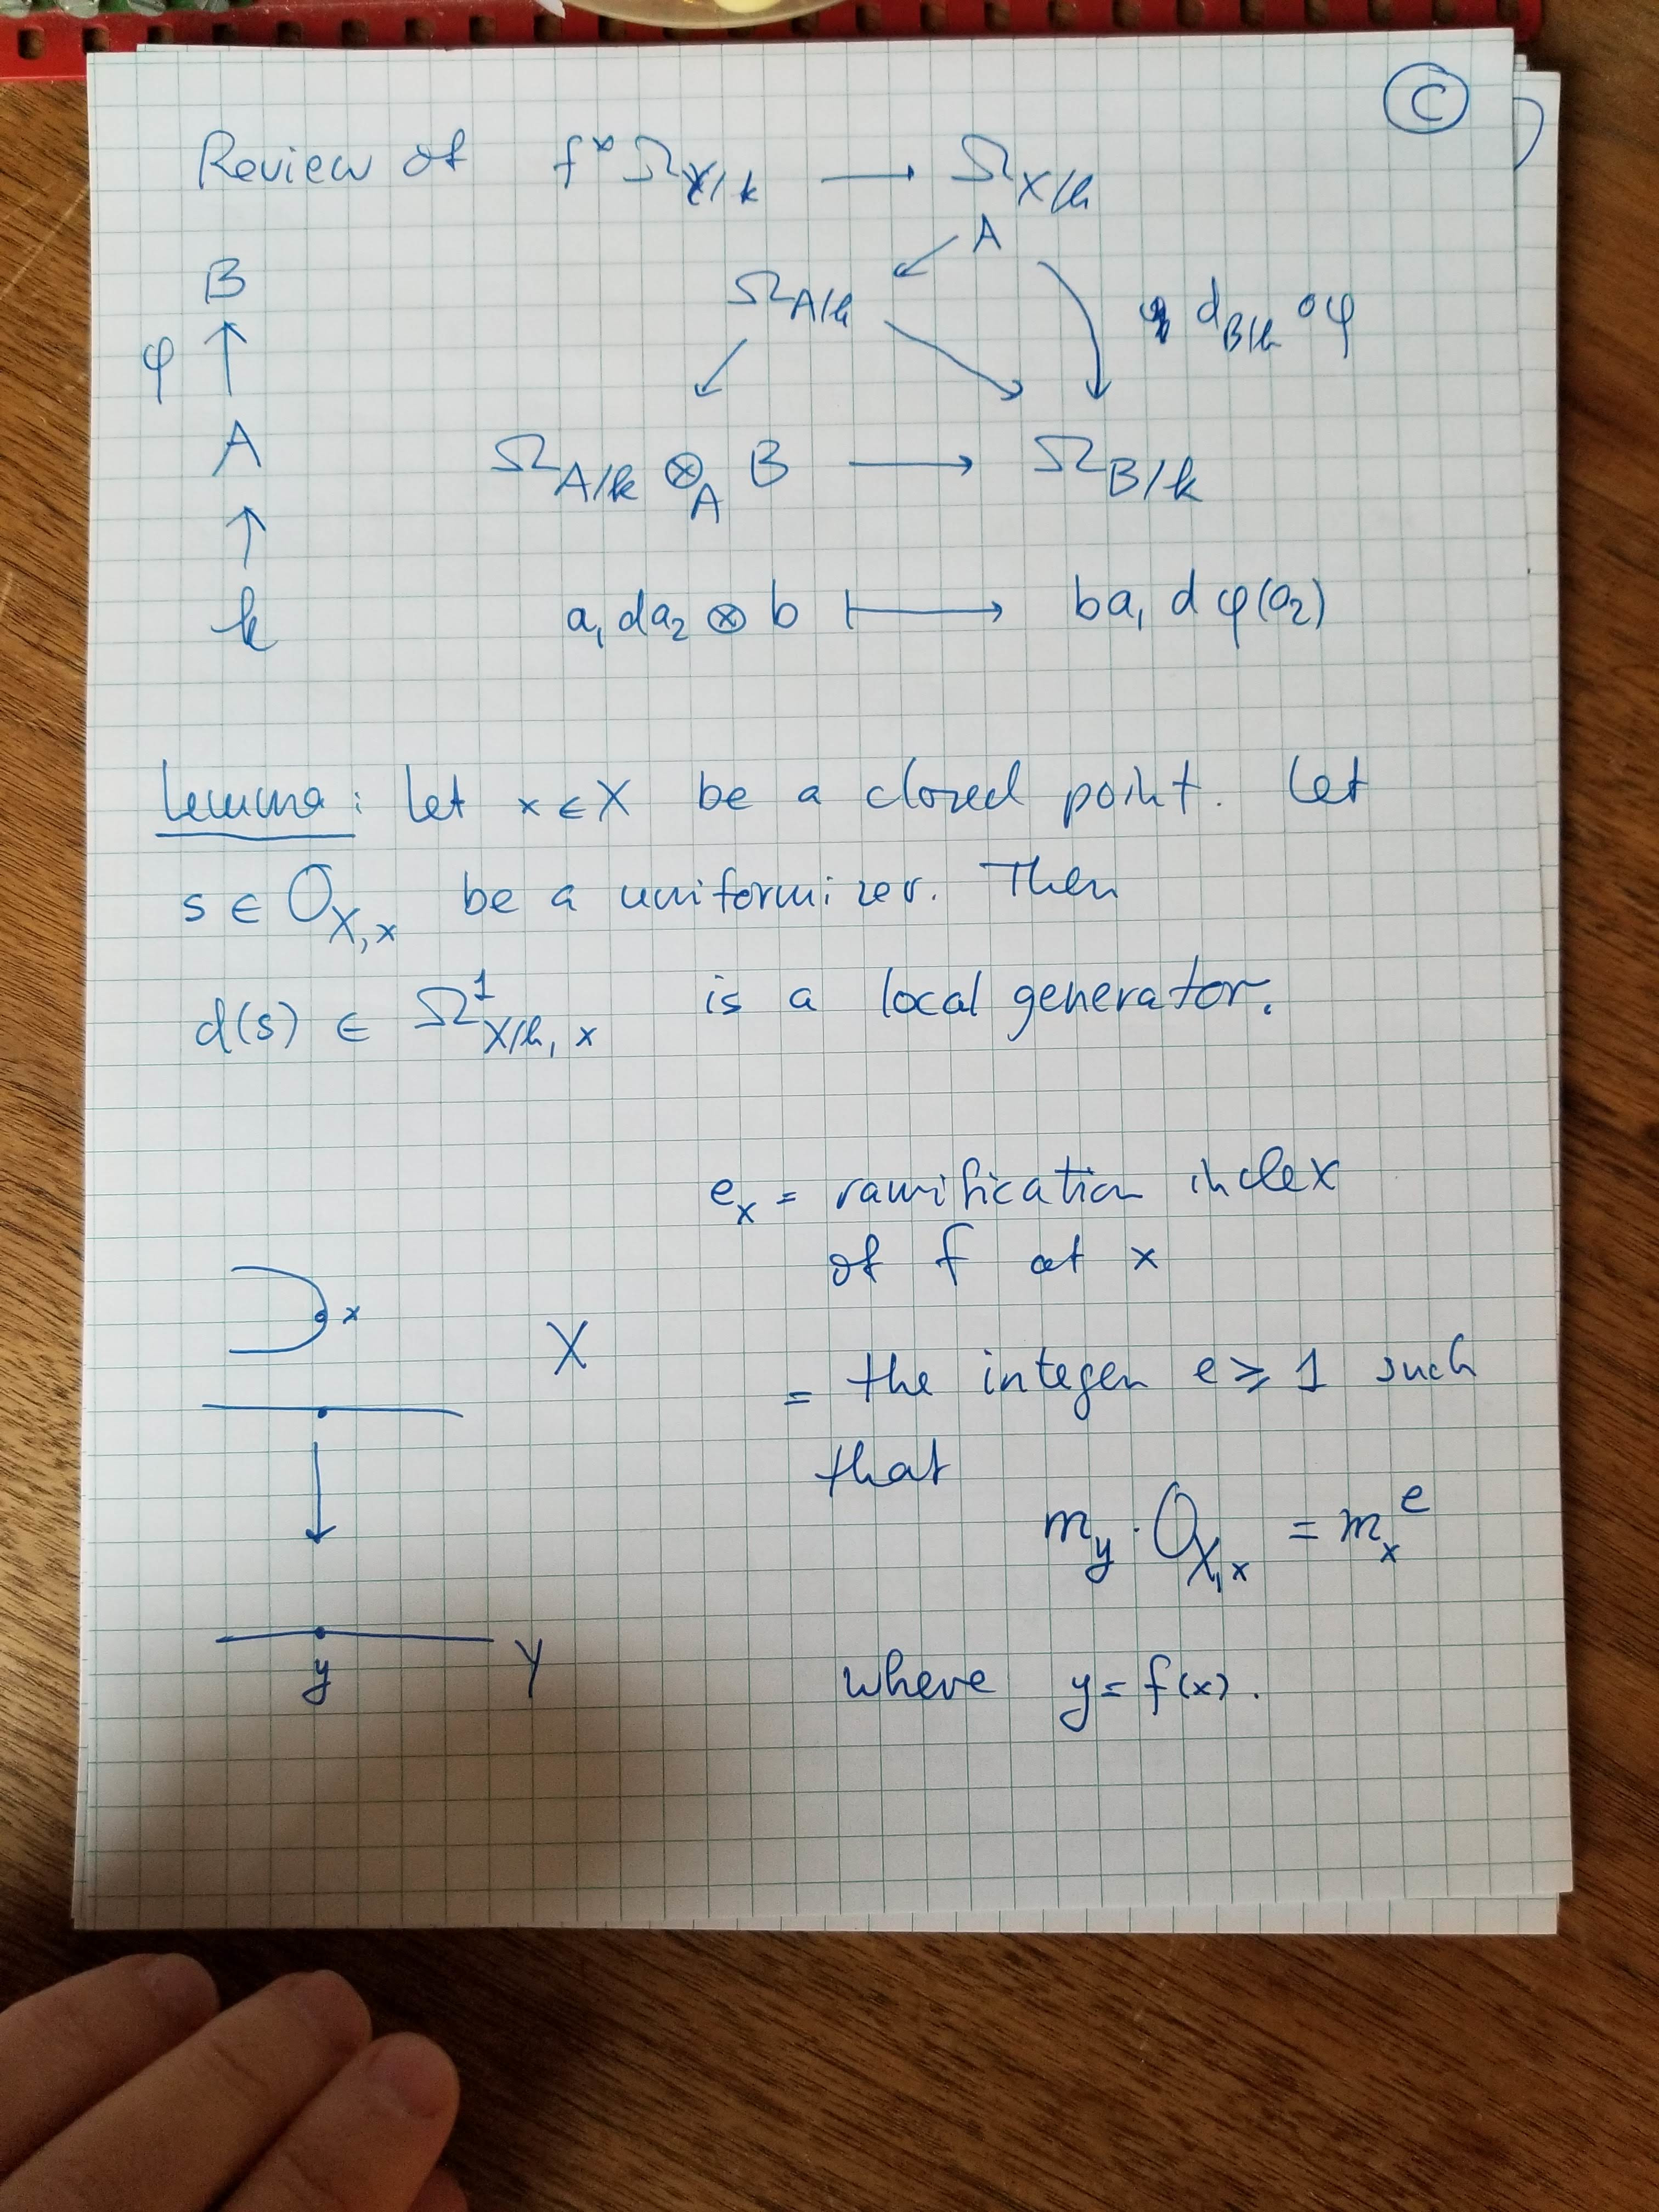 C
Review of f* Ω_{Y/k} ⟶ Ω_{X/k}
A
B
Ω_{A/k}
d_{B/k} ∘ φ
φ ↑
A
Ω_{A/k} ⊗_A B ⟶ Ω_{B/k}
↑
k
a₁ da₂ ⊗ b ⟼ ba₁ d φ(a₂)
Lemma: Let x ∈ X be a closed point. Let
s ∈ O_{X,x} be a uniformizer. Then
d(s) ∈ Ω^1_{X/k, x} is a local generator.
e_x = ramification index
of f at x
x
X
= the integer e ≥ 1 such
that
m_y · O_{X,x} = m_x^e
y
Y
where y = f(x).